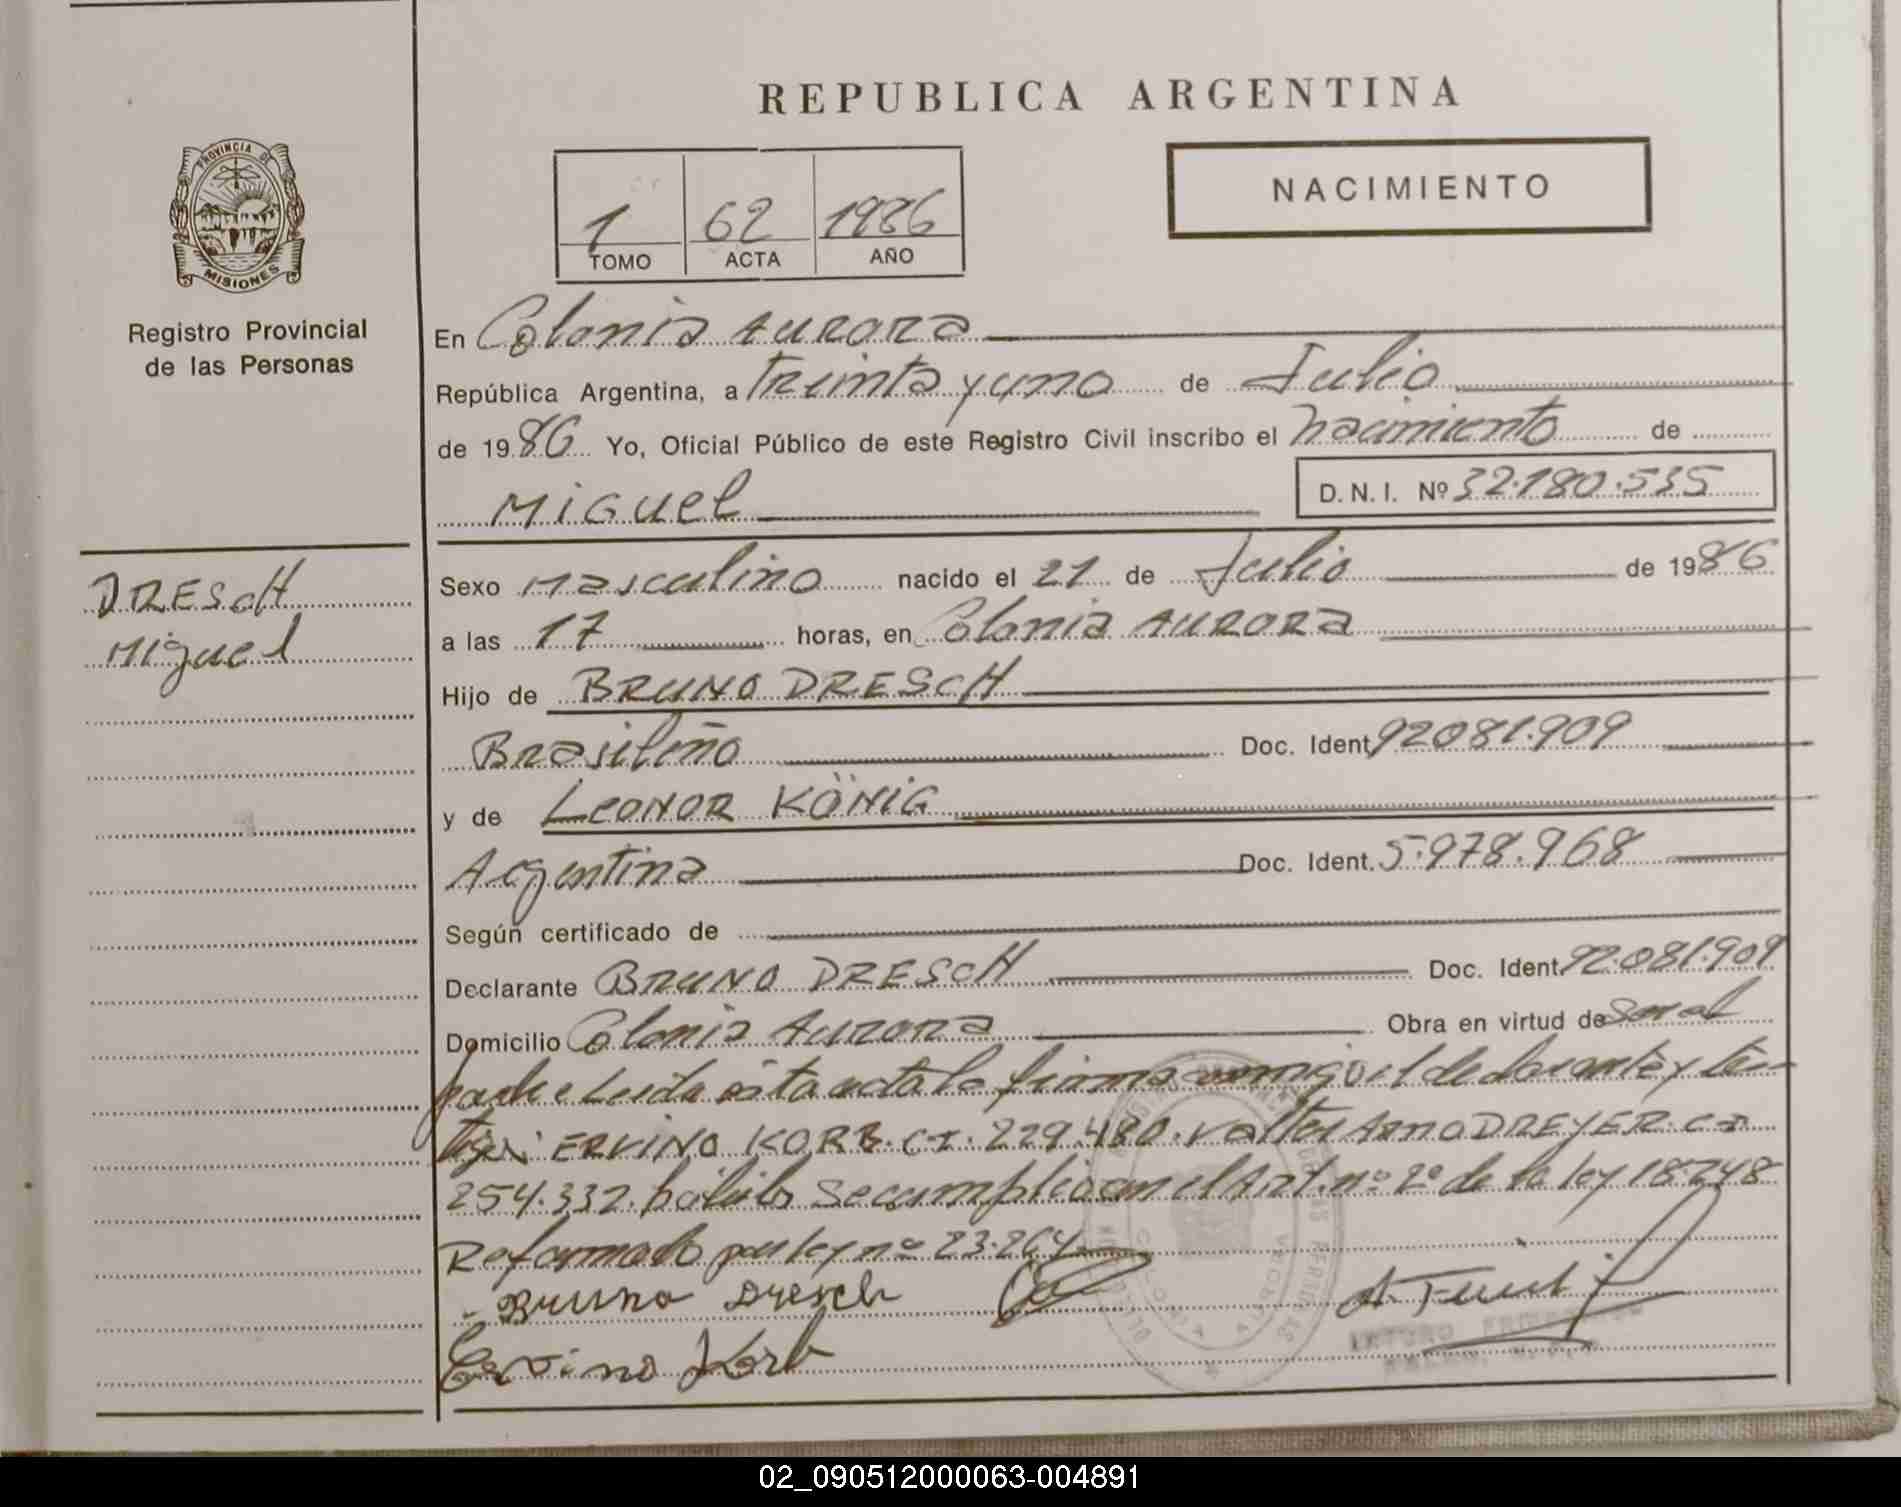 REPUBLICA ARGENTINA
PROVINCIA DE
MISIONES
Registro Provincial
de las Personas
1 62 1986
TOMO ACTA AÑO
NACIMIENTO
En Colonia Aurora
República Argentina, a Treinta y uno de Julio
de 1986 Yo, Oficial Público de este Registro Civil inscribo el Nacimiento de
Miguel D.N.I. Nº 32.180.535
DRESCH
Miguel
Sexo Masculino nacido el 21 de Julio de 1986
a las 17 horas, en Colonia Aurora
Hijo de BRUNO DRESCH
Brasileño Doc. Ident. 92081.909
y de LEONOR KÖNIG
Argentina Doc. Ident. 5.978.968
Según certificado de
Declarante BRUNO DRESCH Doc. Ident. 92.081.909
Domicilio Colonia Aurora Obra en virtud de ser el
padre Leida esta acta la firma conmigo el declarante y tes-
tigos ERVINO KORB. CI. 229.480. Valter Arno DREYER. CI
254.332. hábiles se cumplio con el Art. nº 2º de la ley 18.248
Reformado por ley nº 23.264
Bruno Dresch
Ervino Korb
COLONIA AURORA
ARTURO
02_090512000063-004891